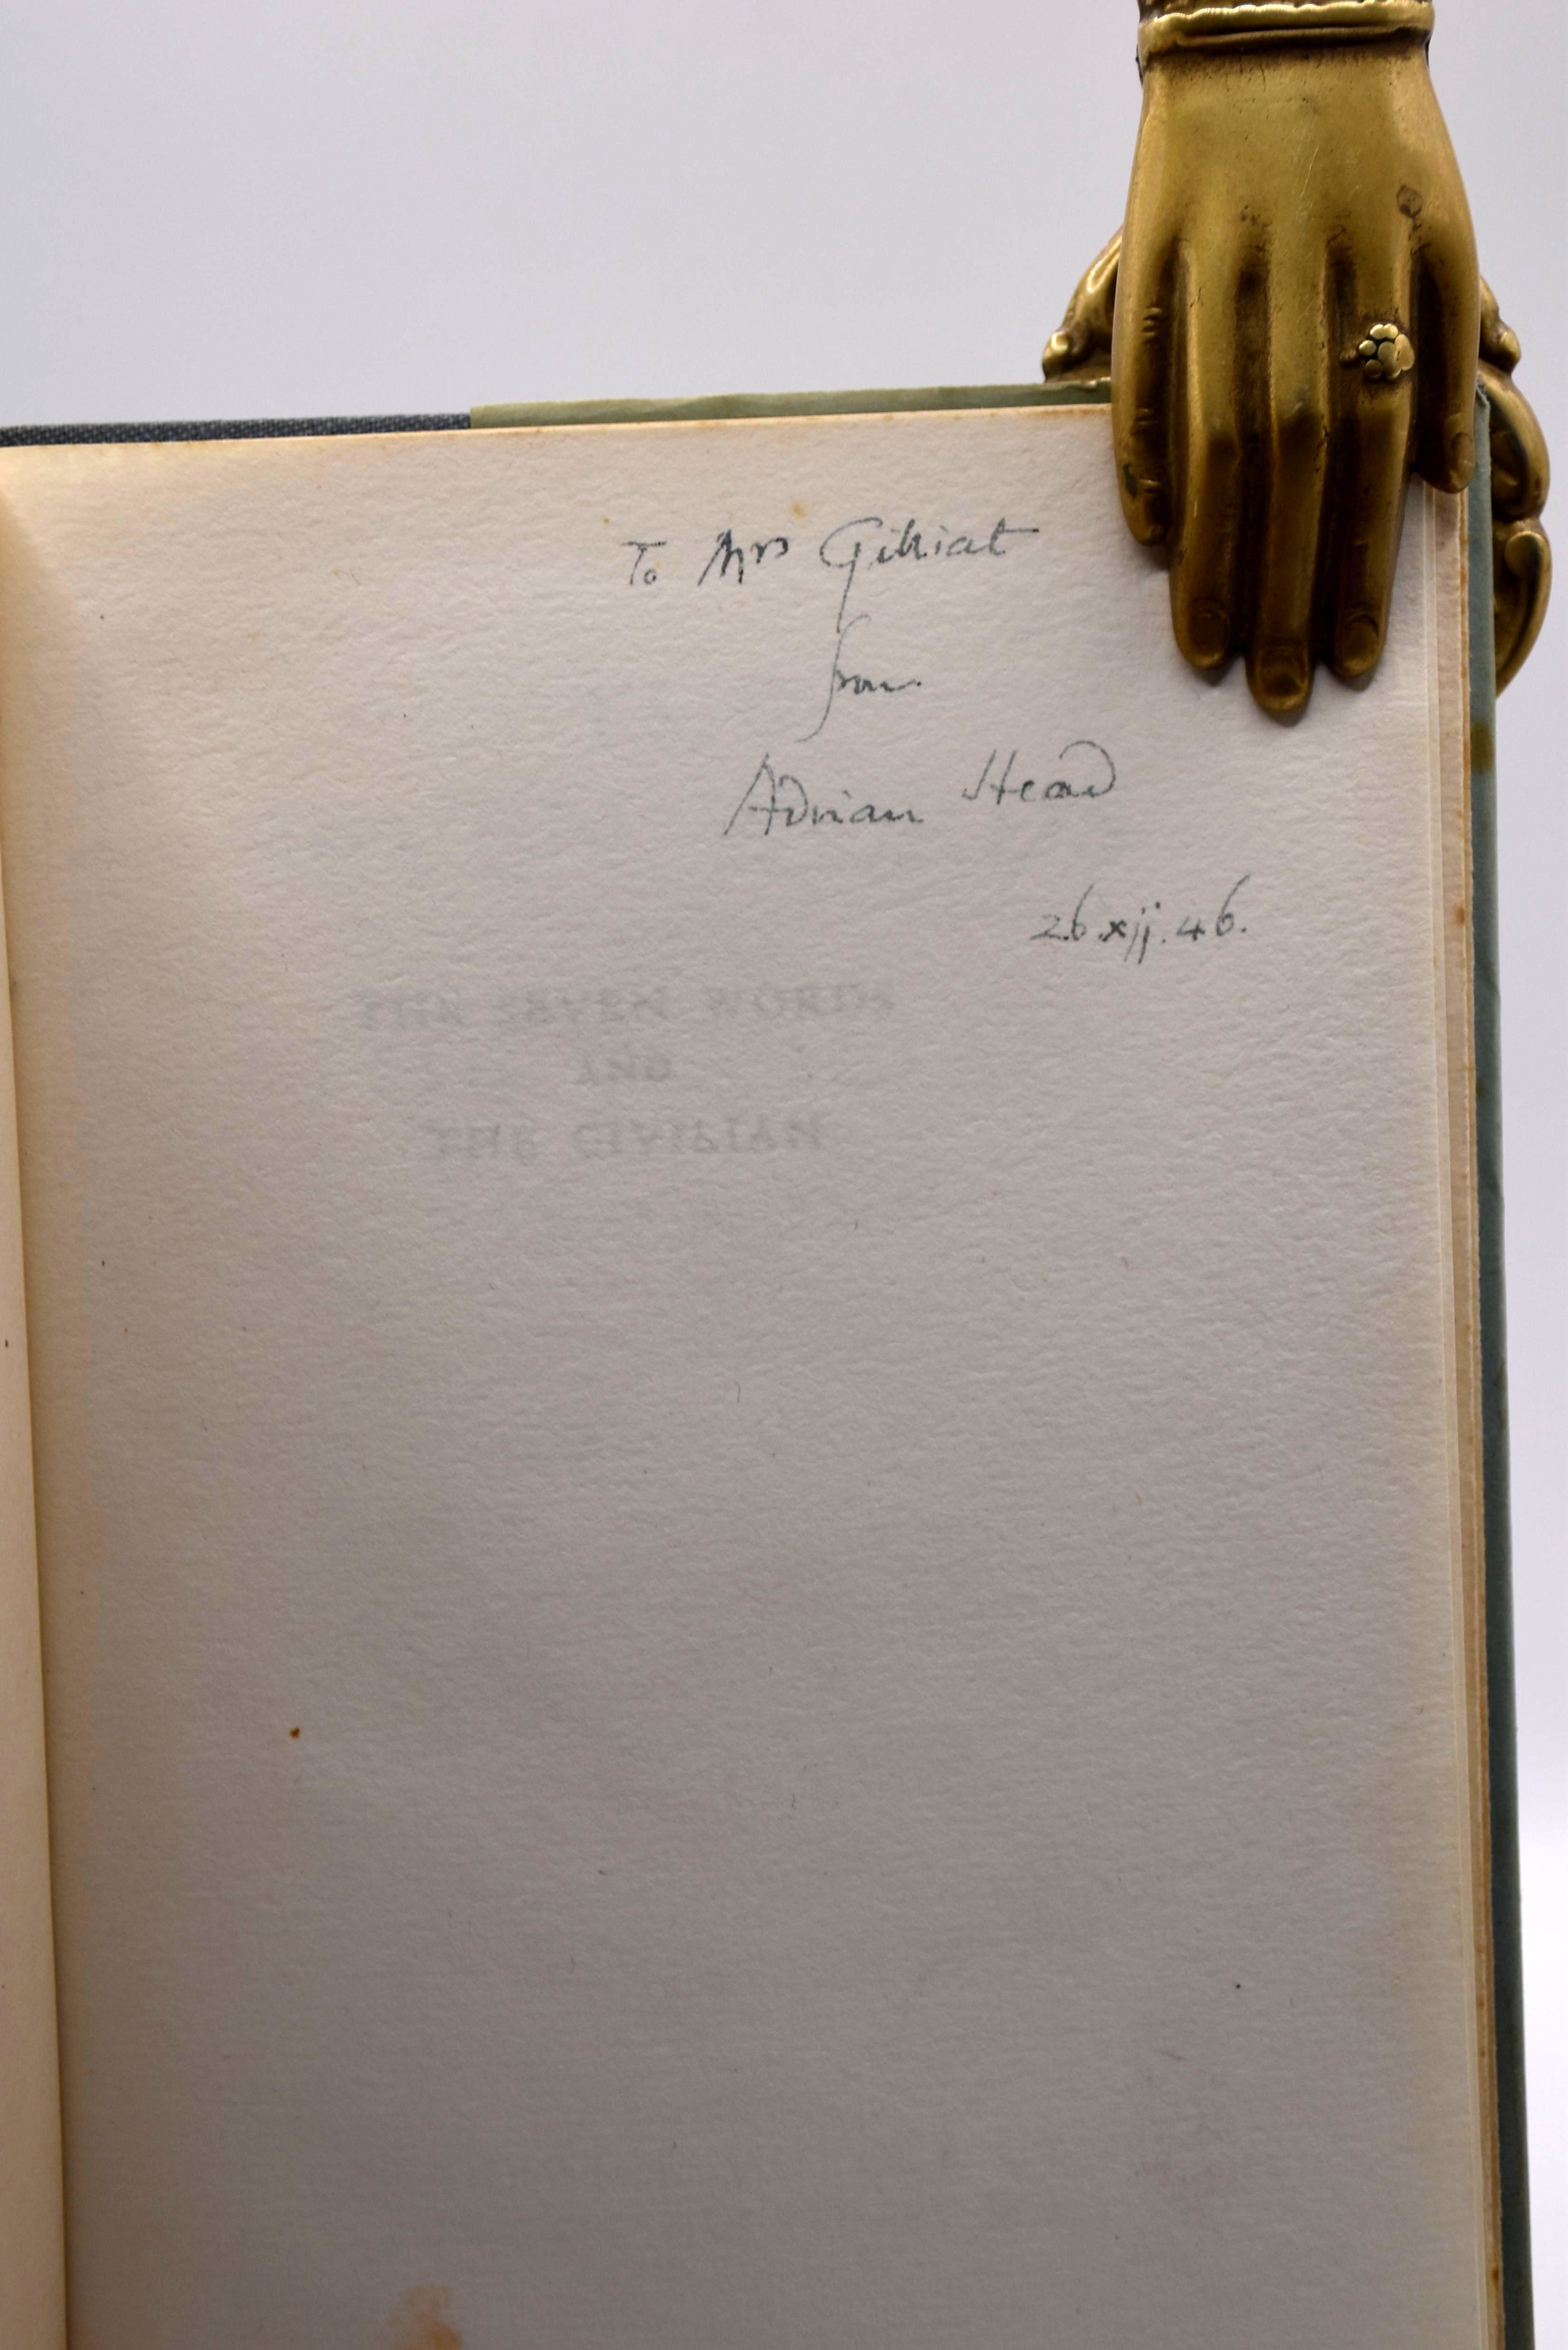 To Mrs Gilliat
from
Adrian Head
26.xij.46.
THE SEVEN WORDS
AND
THE CIVILIAN